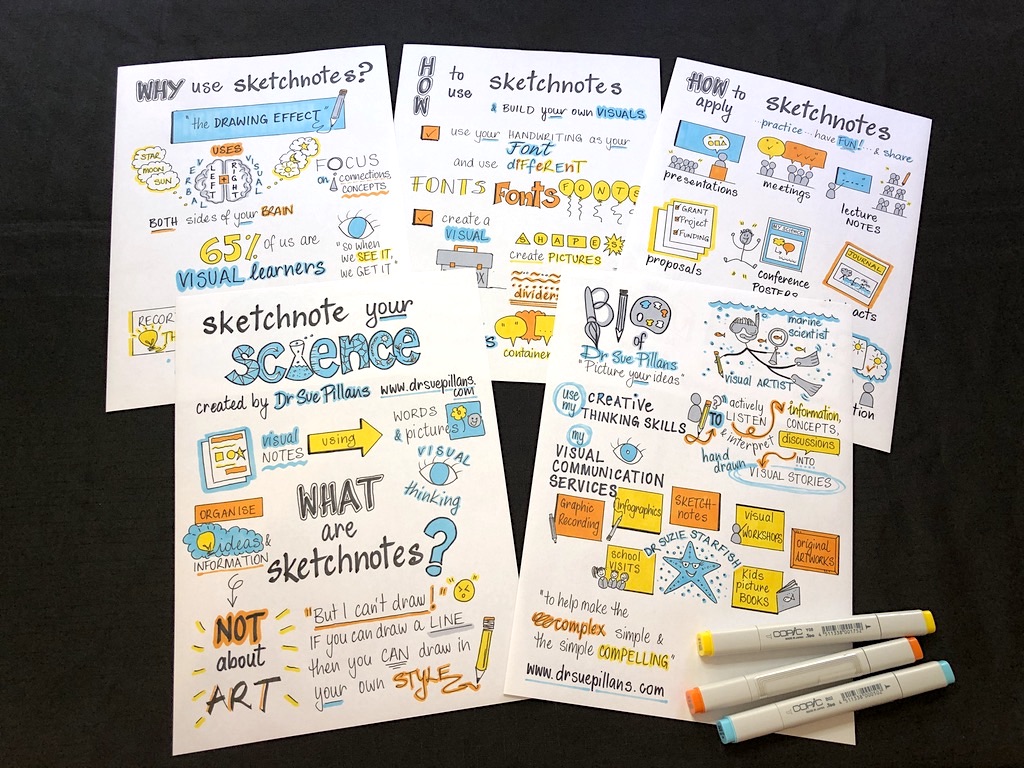 WHY use sketchnotes?
"the DRAWING EFFECT"
USES
STAR
moon
SUN
VERBAL
LEFT
RIGHT
VISUAL
FOCUS
on connections,
CONCEPTS
BOTH sides of your BRAIN
65% of us are
VISUAL learners
"so when
we SEE IT,
WE GET IT"
RECOR
TH
HOW to
use sketchnotes
& BUILD your own VISUALS
use your HANDWRITING as your
Font
and use dIFFeReNT
FONTS Fonts FONTS
create a
VISUAL
SHAPES
create PICTURES
dividers
container
HOW to
apply sketchnotes
...practice...have FUN!...& share
presentations
meetings
lecture
NOTES
GRANT
Project
FUNDING
proposals
MY SCIENCE
conference
POSTERS
JOURNAL
acts
tion
sketchnote your
science
created by Dr Sue Pillans www.drsuepillans.
com
visual
NOTES
using
WORDS
& pictures
VISUAL
thinking
ORGANISE
ideas &
INFORMATION
WHAT
are
sketchnotes?
NOT
about
ART
"But I can't draw!"
IF you can draw a LINE
then you CAN draw in
your own STYLE
BIO
of
Dr Sue Pillans
"Picture your ideas"
marine
scientist
visual ARTIST
use
my CREATIVE
THINKING SKILLS
TO
actively
LISTEN
& interpret
information,
CONCEPTS,
discussions
INTO
hand
drawn
VISUAL STORIES
my
VISUAL
COMMUNICATION
SERVICES
Graphic
Recording
infographics
SKETCH-
notes
visual
WORKSHOPS
original
ARTWORKS
school
VISITS
DR SUZIE STARFISH
Kids
picture
BOOKS
"to help make the
complex simple &
the simple COMPELLING"
www.drsuepillans.com
COPIC
COPIC